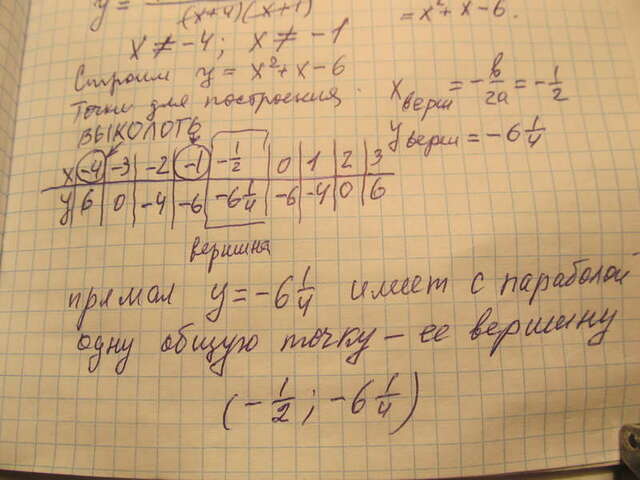 y =
(x+4)(x+1)
= x² + x - 6.
x ≠ -4; x ≠ -1
Строим y = x² + x - 6
Точки для построения.
x верш = -b/2a = -1/2
ВЫКОЛОТЬ
y верш = -6 1/4
x | -4 | -3 | -2 | -1 | -1/2 | 0 | 1 | 2 | 3
y | 6 | 0 | -4 | -6 | -6 1/4 | -6 | -4 | 0 | 6
вершина
прямая y = -6 1/4 имеет с параболой
одну общую точку – ее вершину
(-1/2; -6 1/4)